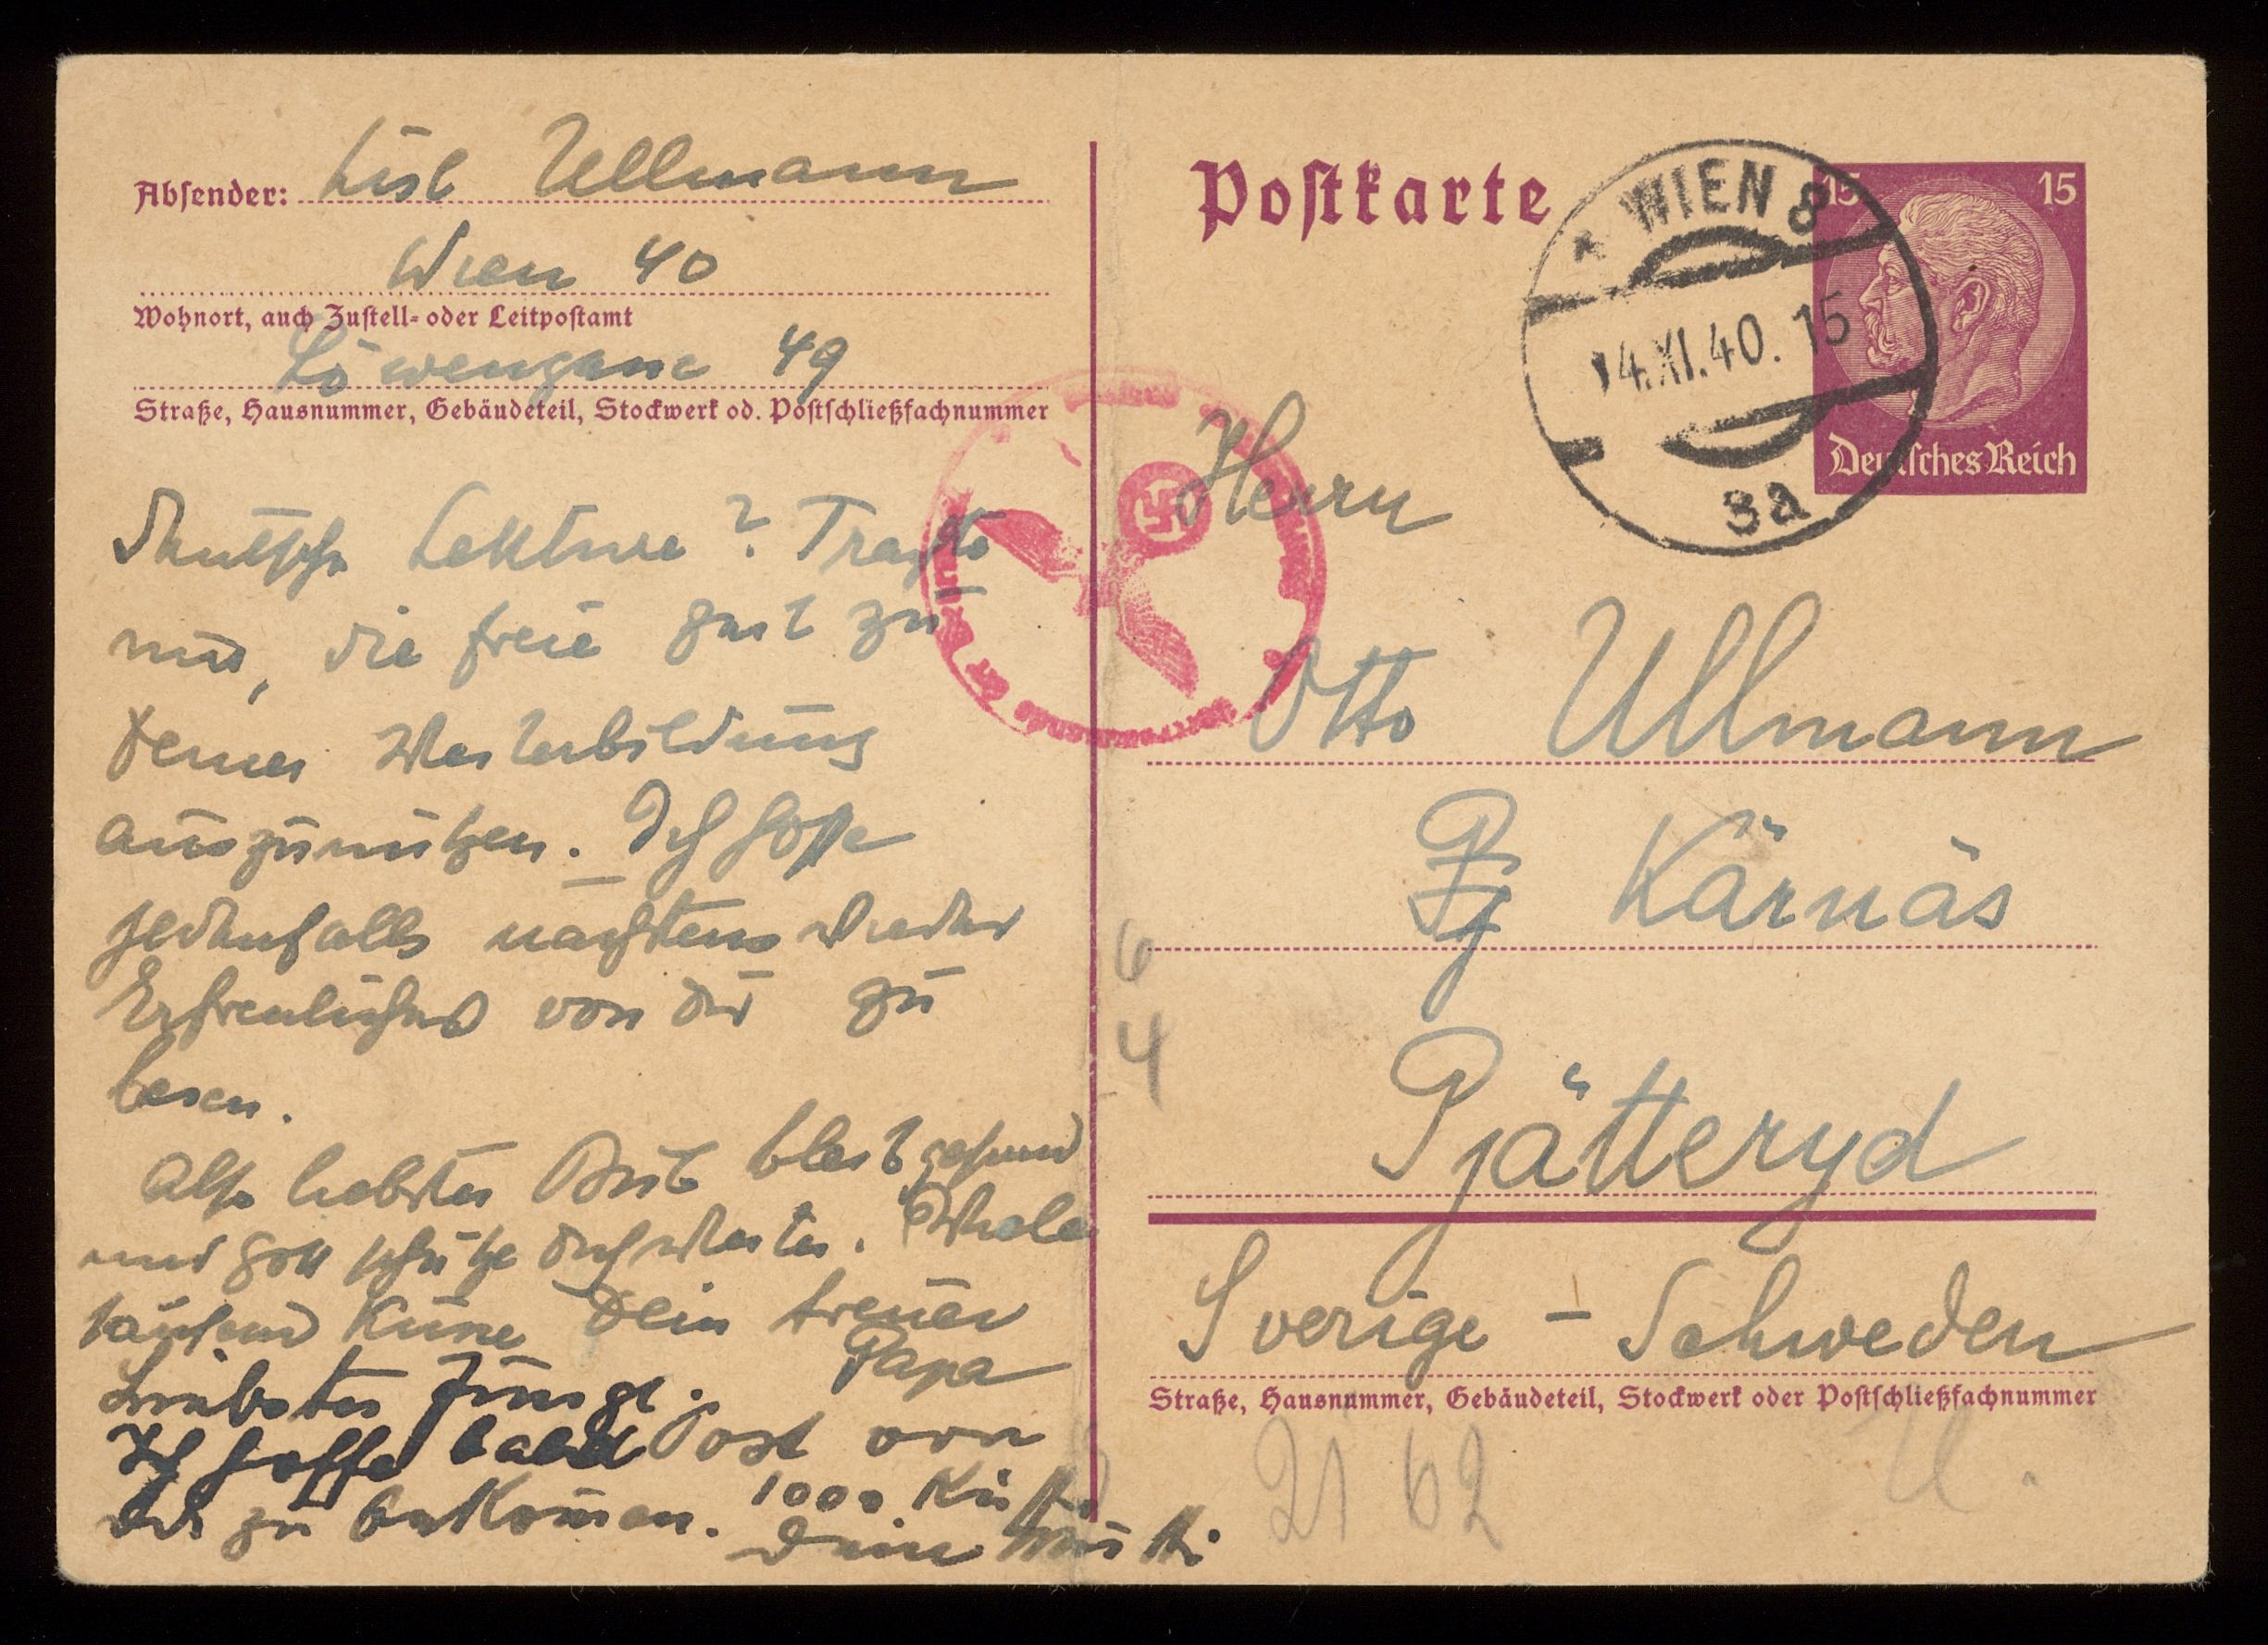 Absender: Lisl Ullmann
Wien 40
Wohnort, auch Zustell- oder Leitpostamt
Löwengasse 49
Straße, Hausnummer, Gebäudeteil, Stockwerk od. Postschließfachnummer
Deutsche Lektüre? Trachte
nur, die freie Zeit zu
Deiner Weiterbildung
auszunützen. Ich hoffe
jedenfalls nächstens wieder
Erfreuliches von dir zu
lesen.
Also liebster Bub bleib gesund
und Gott schütze dich weiter. Viele
tausend Küsse Dein treuer
Papa
Liebster Junge.
Ich hoffe bald Post von
Dir zu bekommen. 1000 Küsse
Deine Mutti
Postkarte
WIEN 8
14.XI.40.15
3a
15 15
Deutsches Reich
Herrn
Otto Ullmann
Kärnäs
Pjätteryd
Sverige - Schweden
Straße, Hausnummer, Gebäudeteil, Stockwerk oder Postschließfachnummer
6
4
21 62